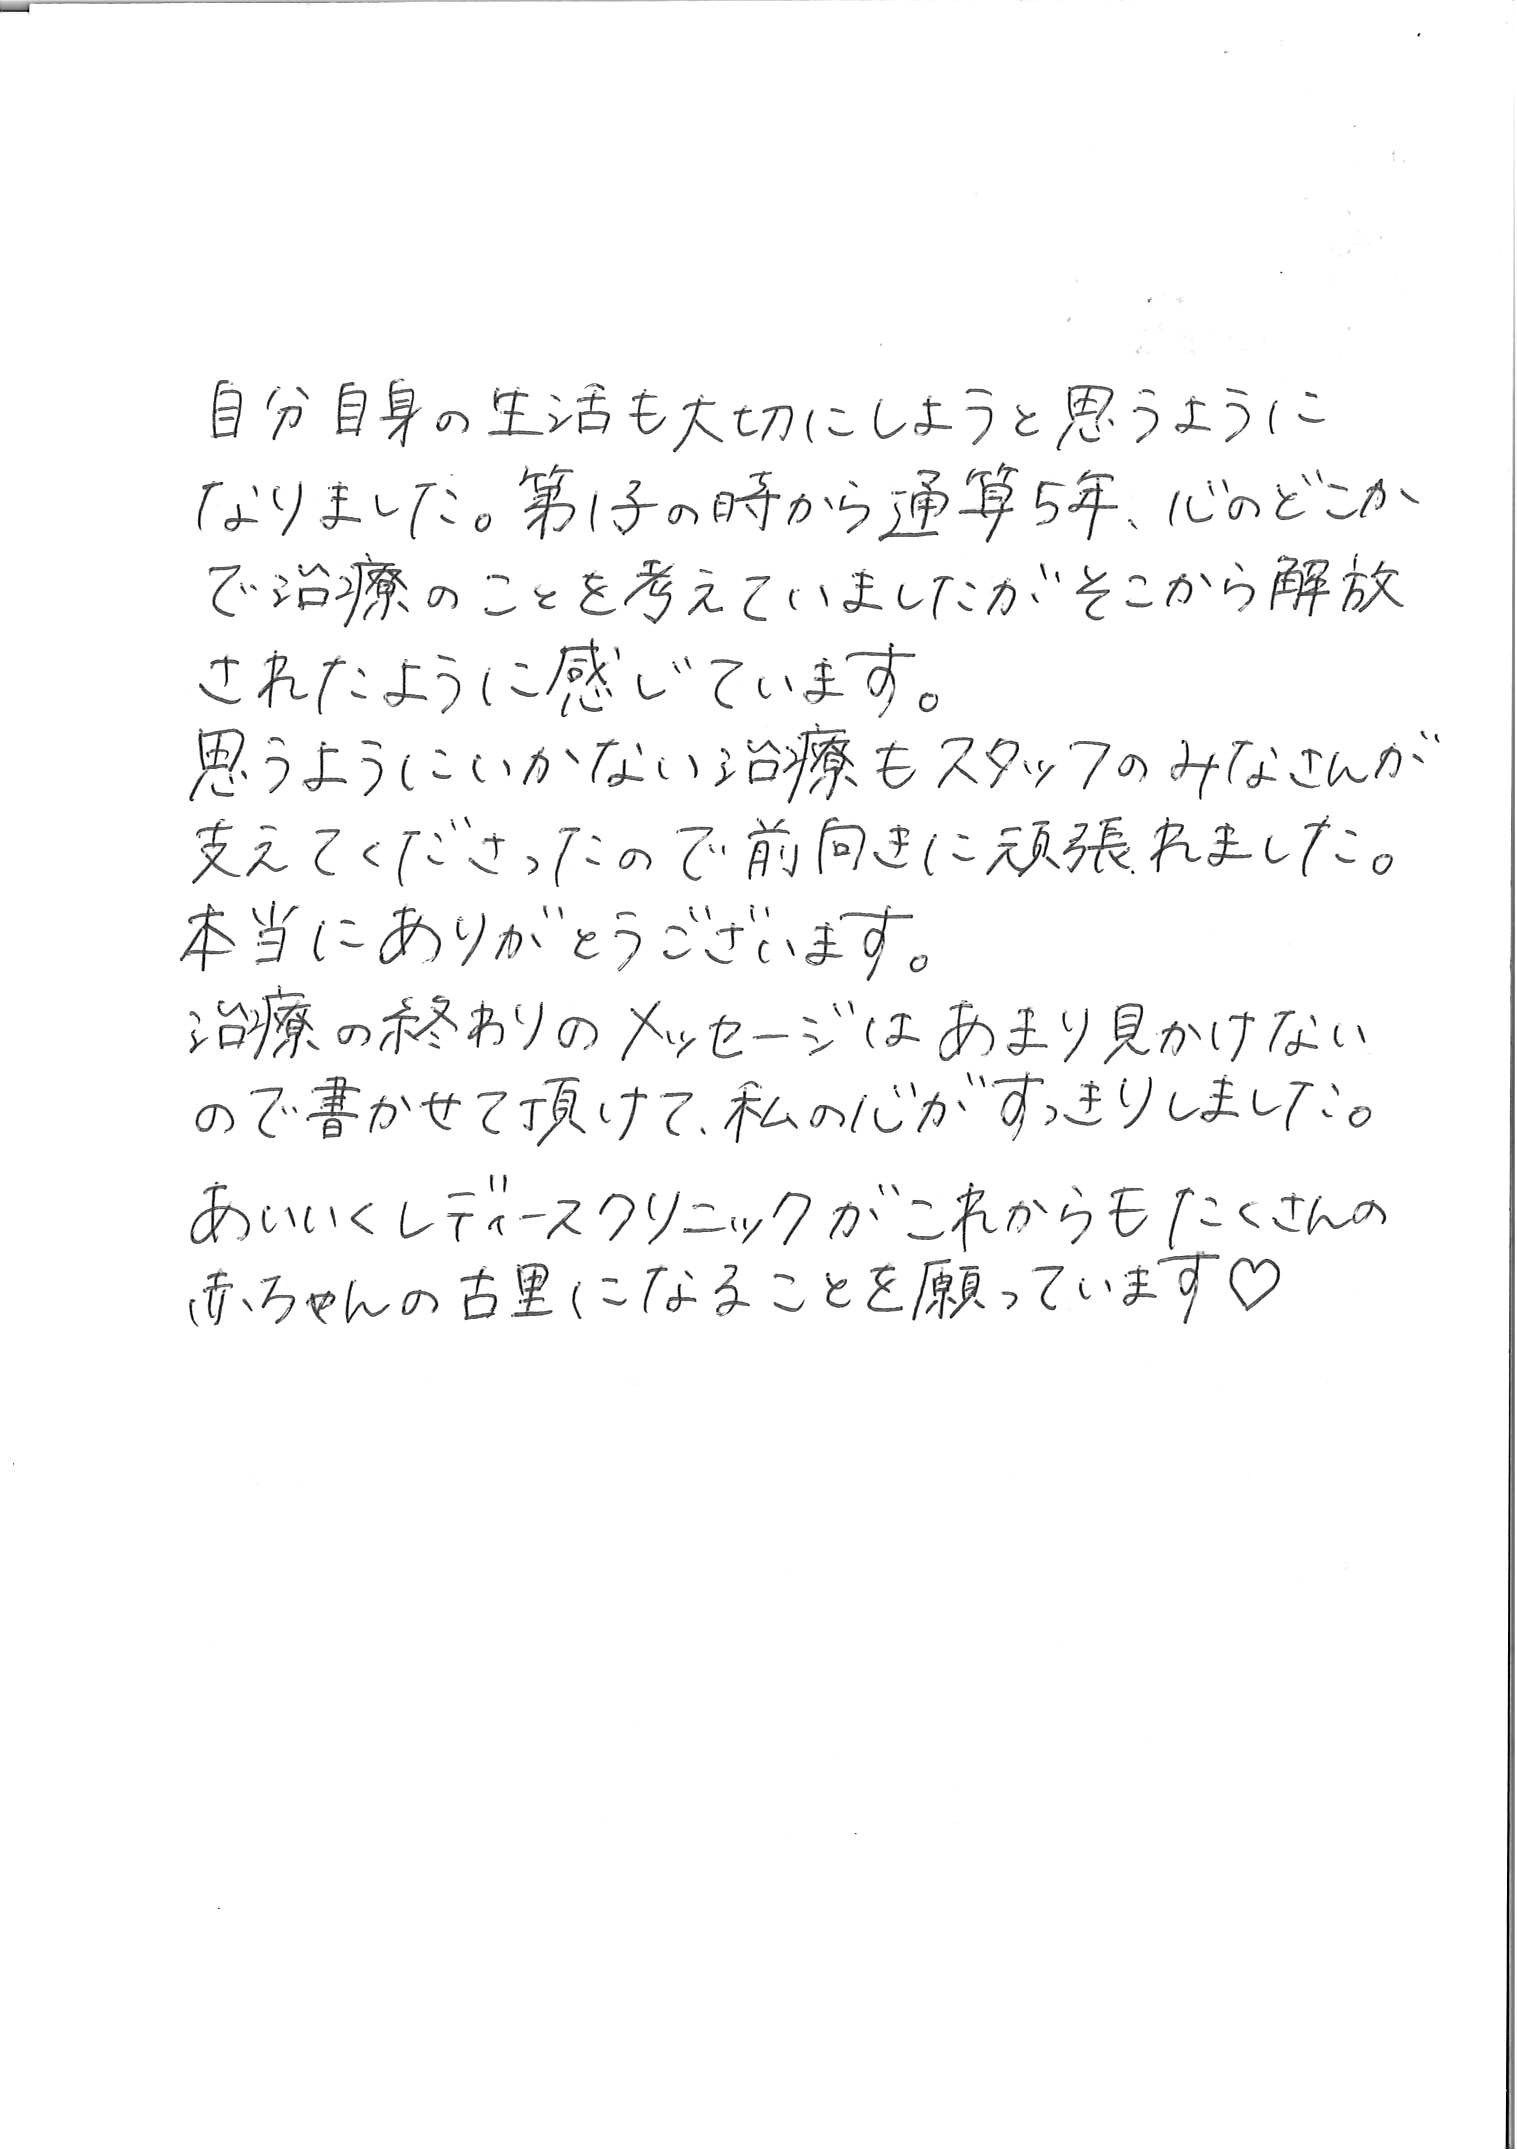 自分自身の生活も大切にしようと思うように
なりました。第1子の時から通算5年、心のどこか
で治療のことを考えていましたがそこから解放
されたように感じています。
思うようにいかない治療もスタッフのみなさんが
支えてくださったので前向きに頑張れました。
本当にありがとうございます。
治療の終わりのメッセージはあまり見かけない
ので書かせて頂けて、私の心がすっきりしました。
あいいくレディースクリニックがこれからもたくさんの
赤ちゃんの古里になることを願っています♡